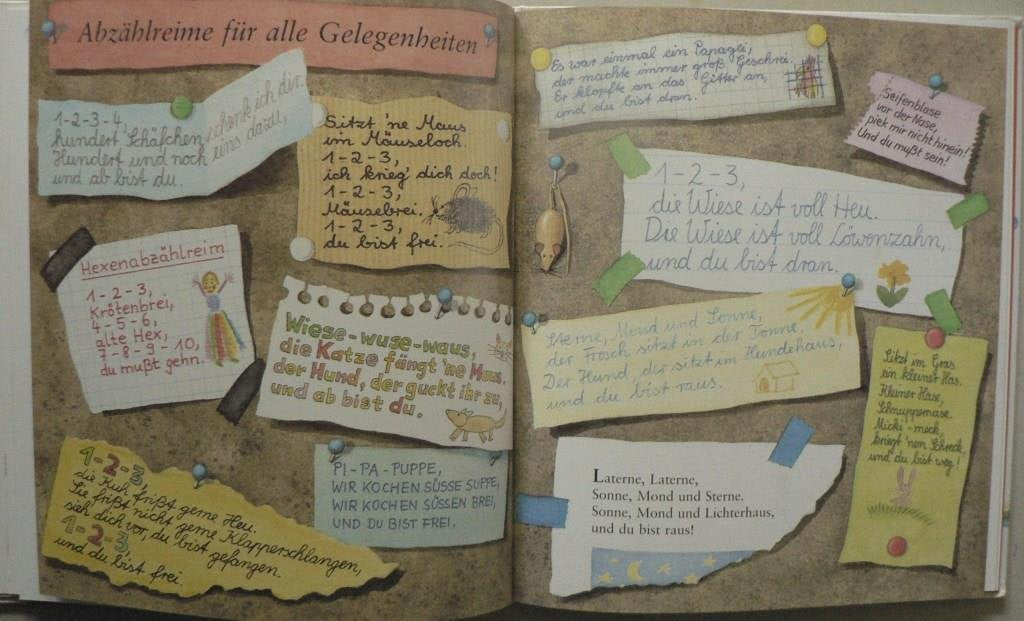 Abzählreime für alle Gelegenheiten
1-2-3-4,
hundert Schäfchen schenk ich dir.
Hundert und noch eins dazu,
und ab bist du.
Sitzt 'ne Maus
im Mäuseloch.
1-2-3,
ich krieg' dich doch!
1-2-3,
Mäusebrei.
1-2-3,
du bist frei.
Hexenabzählreim
1-2-3,
Krötenbrei,
4-5-6,
alte Hex,
7-8-9-10,
du mußt gehn.
Wiese-wuse-waus,
die Katze fängt 'ne Maus.
der Hund, der guckt ihr zu,
und ab bist du.
1-2-3,
die Kuh frißt gerne Heu.
Sie frißt nicht gerne Klapperschlangen,
seh dich vor, du bist gefangen.
1-2-3,
und du bist frei.
PI-PA-PUPPE,
WIR KOCHEN SÜSSE SUPPE,
WIR KOCHEN SÜSSEN BREI,
UND DU BIST FREI.
Es war einmal ein Papagei,
der machte immer groß Geschrei.
Er klopfte an das Gitter an,
und du bist dran.
Seifenblase
vor der Nase,
piek mir nicht hinein!
Und du mußt sein!
1-2-3,
die Wiese ist voll Heu.
Die Wiese ist voll Löwenzahn,
und du bist dran.
Sterne, Mond und Sonne,
der Frosch sitzt in der Tonne.
Der Hund, der sitzt im Hundehaus,
und du bist raus.
Sitzt im Gras
ein kleiner Has.
Kleiner Hase,
Schnuppernase.
Micki-meck,
kriegt 'nen Schreck
und du bist weg!
Laterne, Laterne,
Sonne, Mond und Sterne.
Sonne, Mond und Lichterhaus,
und du bist raus!